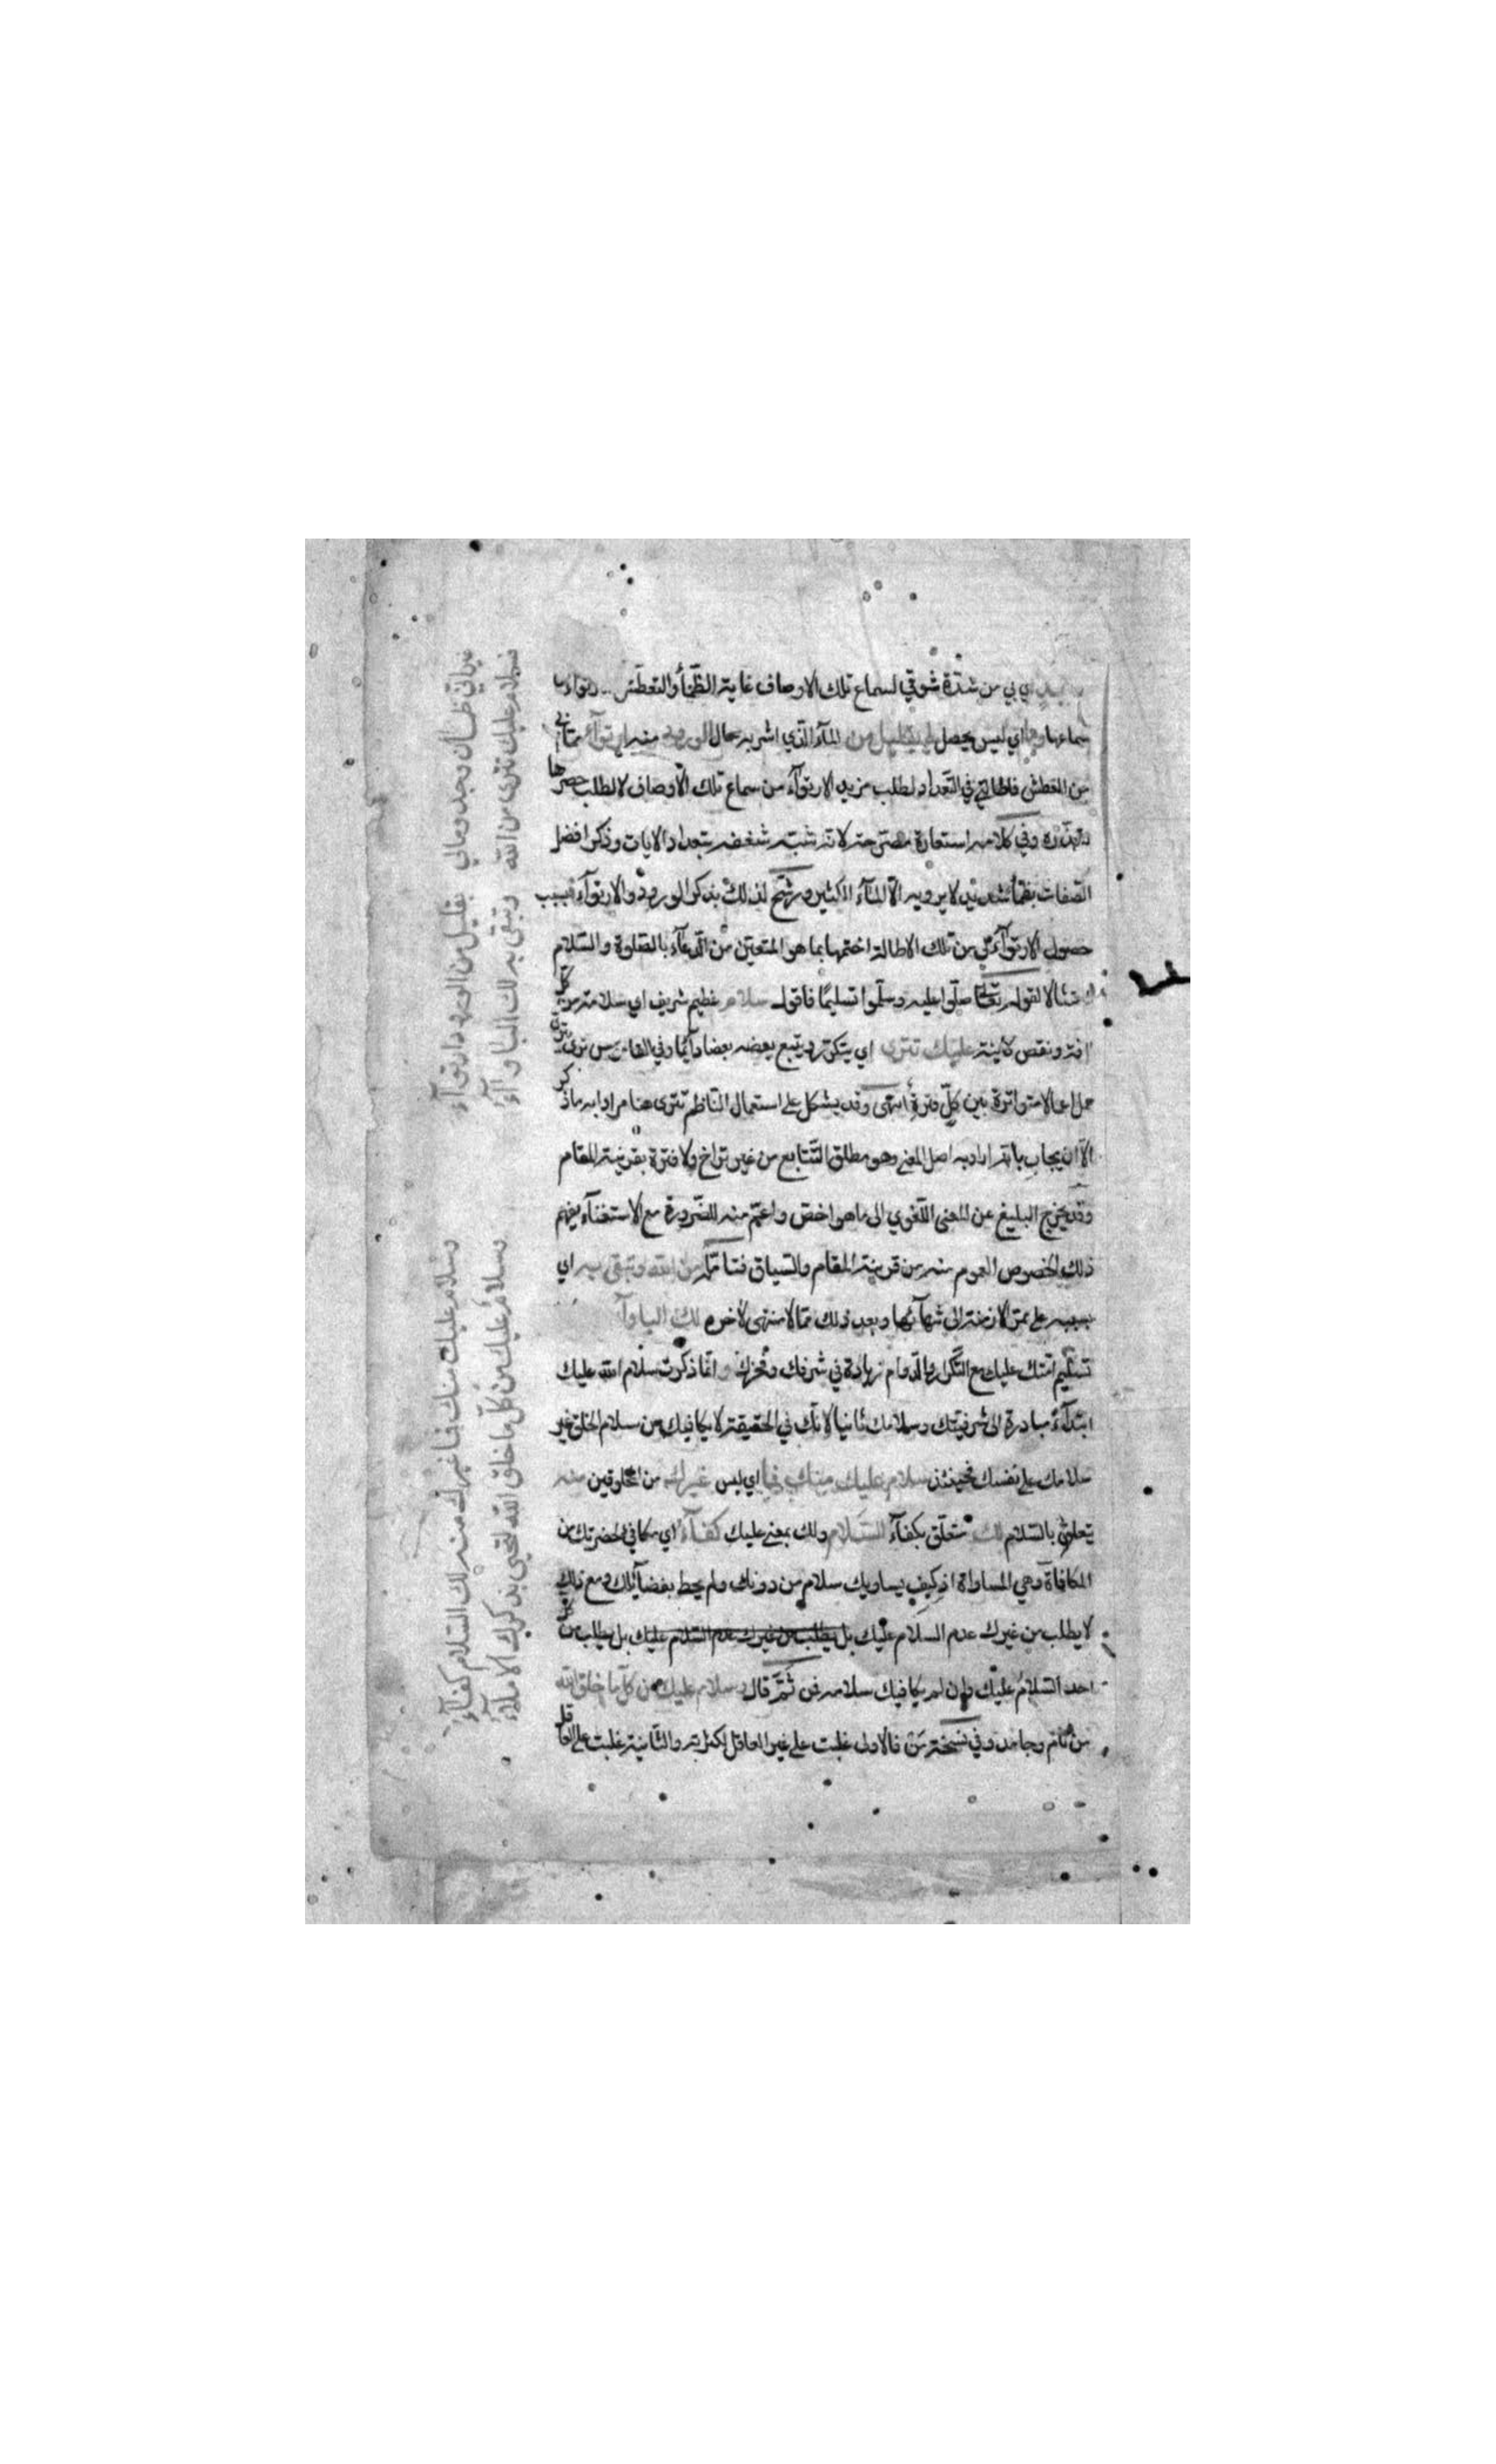 بي من شدة شوقي لسماع تلك الاوصاف غاية الظمأ والتعطش
سماعها وما اي ليس يحصل لي بقليل من المآء الذي اشربه حال الورود منه ارتوآء مما بي
من العطش فاطالتي في التعداد لطلب مزيد الارتوآء من سماع تلك الاوصاف لا لطلب حصرها
وفي كلامه استعارة لانه شبه شغفه بتعداد الايات وذكر افضل
الصفات بظمأ شديد لا يرويه الا المآء الكثير ورشح لذلك بذكر الورود والارتوآء فبسبب
حصول الارتوآء لي من تلك الاطالة اختمها بما هو المتعين من الدعآء بالصلوة والسلام
امتثالا لقوله تعالى صلوا عليه وسلموا تسليمًا فاقول سلام عظيم شريف اي سلامة من كل
افة ونقص كاينة عليك تترى اي يتكرر ويتبع بعضه بعضا دآئما وفي القاموس تترى
متواترة بين كل فترة انتهى وقد يشكل على استعمال الناظم تترى هنا مرادا به ما ذكر
الا ان يجاب بانه اراد به اصل المعنى وهو مطلق التتابع من غير تراخ ولا فترة بقرينة المقام
وقد يخرج البليغ عن المعنى اللغوي الى ما هو اخص واعم منه للضرورة مع الاستغنآء بفهم
ذلك الخصوص العموم منه من قرينة المقام والسياق فتامله من الله وتبقى به اي
بسببه على ممر الازمنة الى نهآئها وبعد ذلك مما لا منتهى لاخره لك البأوآء
تسليم امتك عليك مع التكرار والدوام زيادة في شرفك وفخرك وانما ذكرت سلام الله عليك
ابتدآء مبادرة الى شرفيتك وسلامك ثانيا لانك في الحقيقة لا يكافيك من سلام الخلق غير
سلامك على نفسك فحينئذ سلام عليك منك فما اي ليس غيرك من المخلوقين منه
يتعلق بالسلام لك متعلق بكفآء السلام ولك بمعنى عليك كفآء اي مكافي لحضرتك من
المكافاة وهي المساواة اذ كيف يساويك سلام من دونك ولم يحط بفضآئلك ومع ذلك
لا يطلب من غيرك عدم السلام عليك بل يطلب من غيرك عدم السلام عليك بل يطلب من كل
احد السلام عليك وان لم يكافيك سلامه فمن ثمّ قال وسلام عليك من كل ما خلق الله
من نام وجامد وفي نسخة من فالاولى غلبت على غير العاقل لكثرته والثانية غلبت على العاقل
غير اني ظمآن وجد ومالي بقليل من الورود ارتوآء
فسلام عليك تترى من الله وتبقى به لك البأوآء
وسلام عليك منك فما غيرك منه لك السلام كفآء
وسلام عليك من كل ما خلق الله لتحيى بذكرك الأملاء